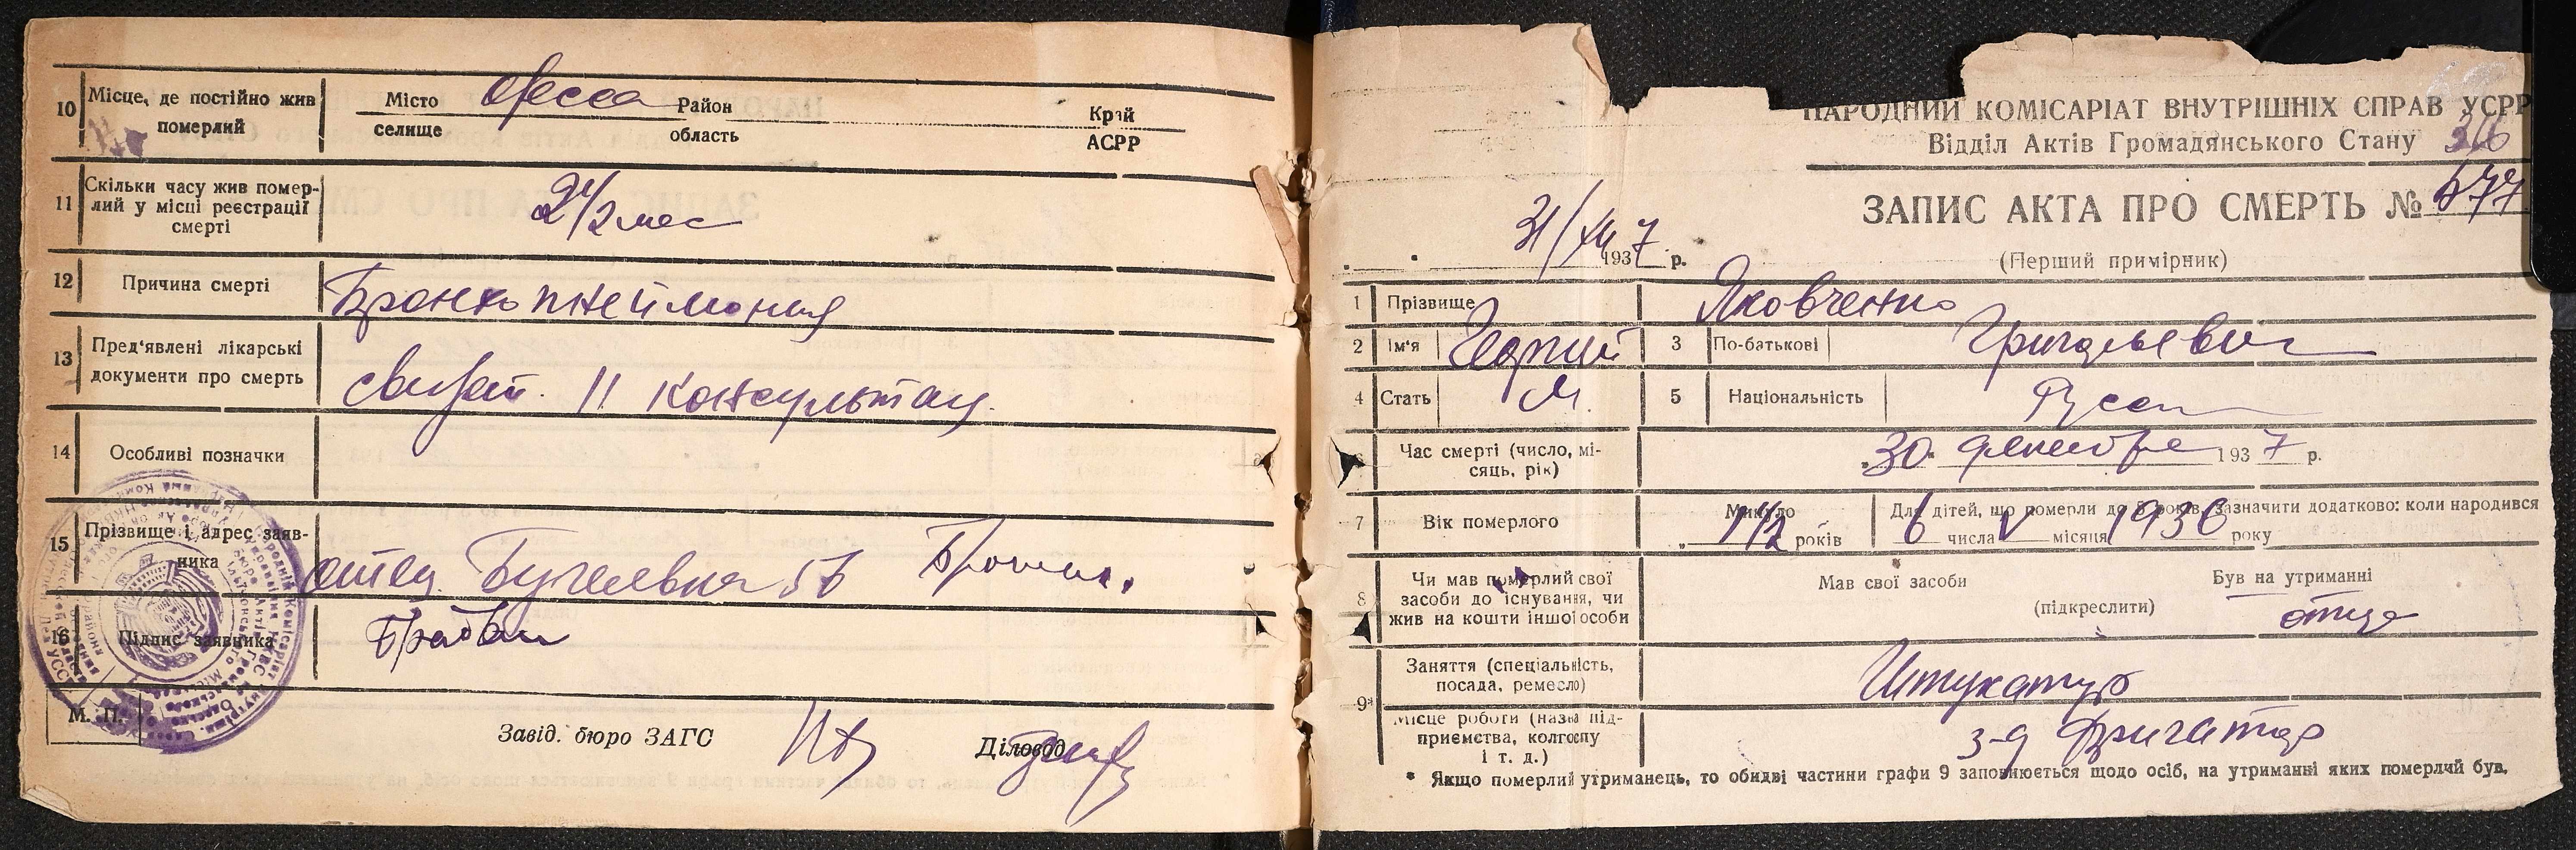 10 Місце, де постійно жив померлий
Місто селище Одесса Район область Край АСРР
11 Скільки часу жив померлий у місці реєстрації смерті
мес
12 Причина смерті Бронхопнеймония
13 Пред'явлені лікарські документи про смерть
11 консультац.
14 Особливі позначки
15 Прізвище і адрес заявника
отец
16 Підпис заявника
М. П.
Завід. бюро ЗАГС Діловод
НАРОДНИЙ КОМІСАРІАТ ВНУТРІШНІХ СПРАВ УСРР
Відділ Актів Громадянського Стану
ЗАПИС АКТА ПРО СМЕРТЬ № 677
31/XII 1937 р.
(Перший примірник)
1 Прізвище Яковченко
2 Ім'я 3 По-батькові Григорьевич
4 Стать М. 5 Національність
6 Час смерті (число, місяць, рік) 30 декабря 1937 р.
7 Вік померлого Минуло 1 1/2 років
Для дітей, що померли до 5 років, зазначити додатково: коли народився
6 числа V місяця 1936 року
8 Чи мав померлий свої засоби до існування, чи жив на кошти іншої особи
Мав свої засоби Був на утриманні
(підкреслити) отца
9* Заняття (спеціальність, посада, ремесло) Штукатур
Місце роботи (назва підприємства, колгоспу і т. д.) з-д
* Якщо померлий утриманець, то обидві частини графи 9 заповнюється щодо осіб, на утриманні яких померлий був.